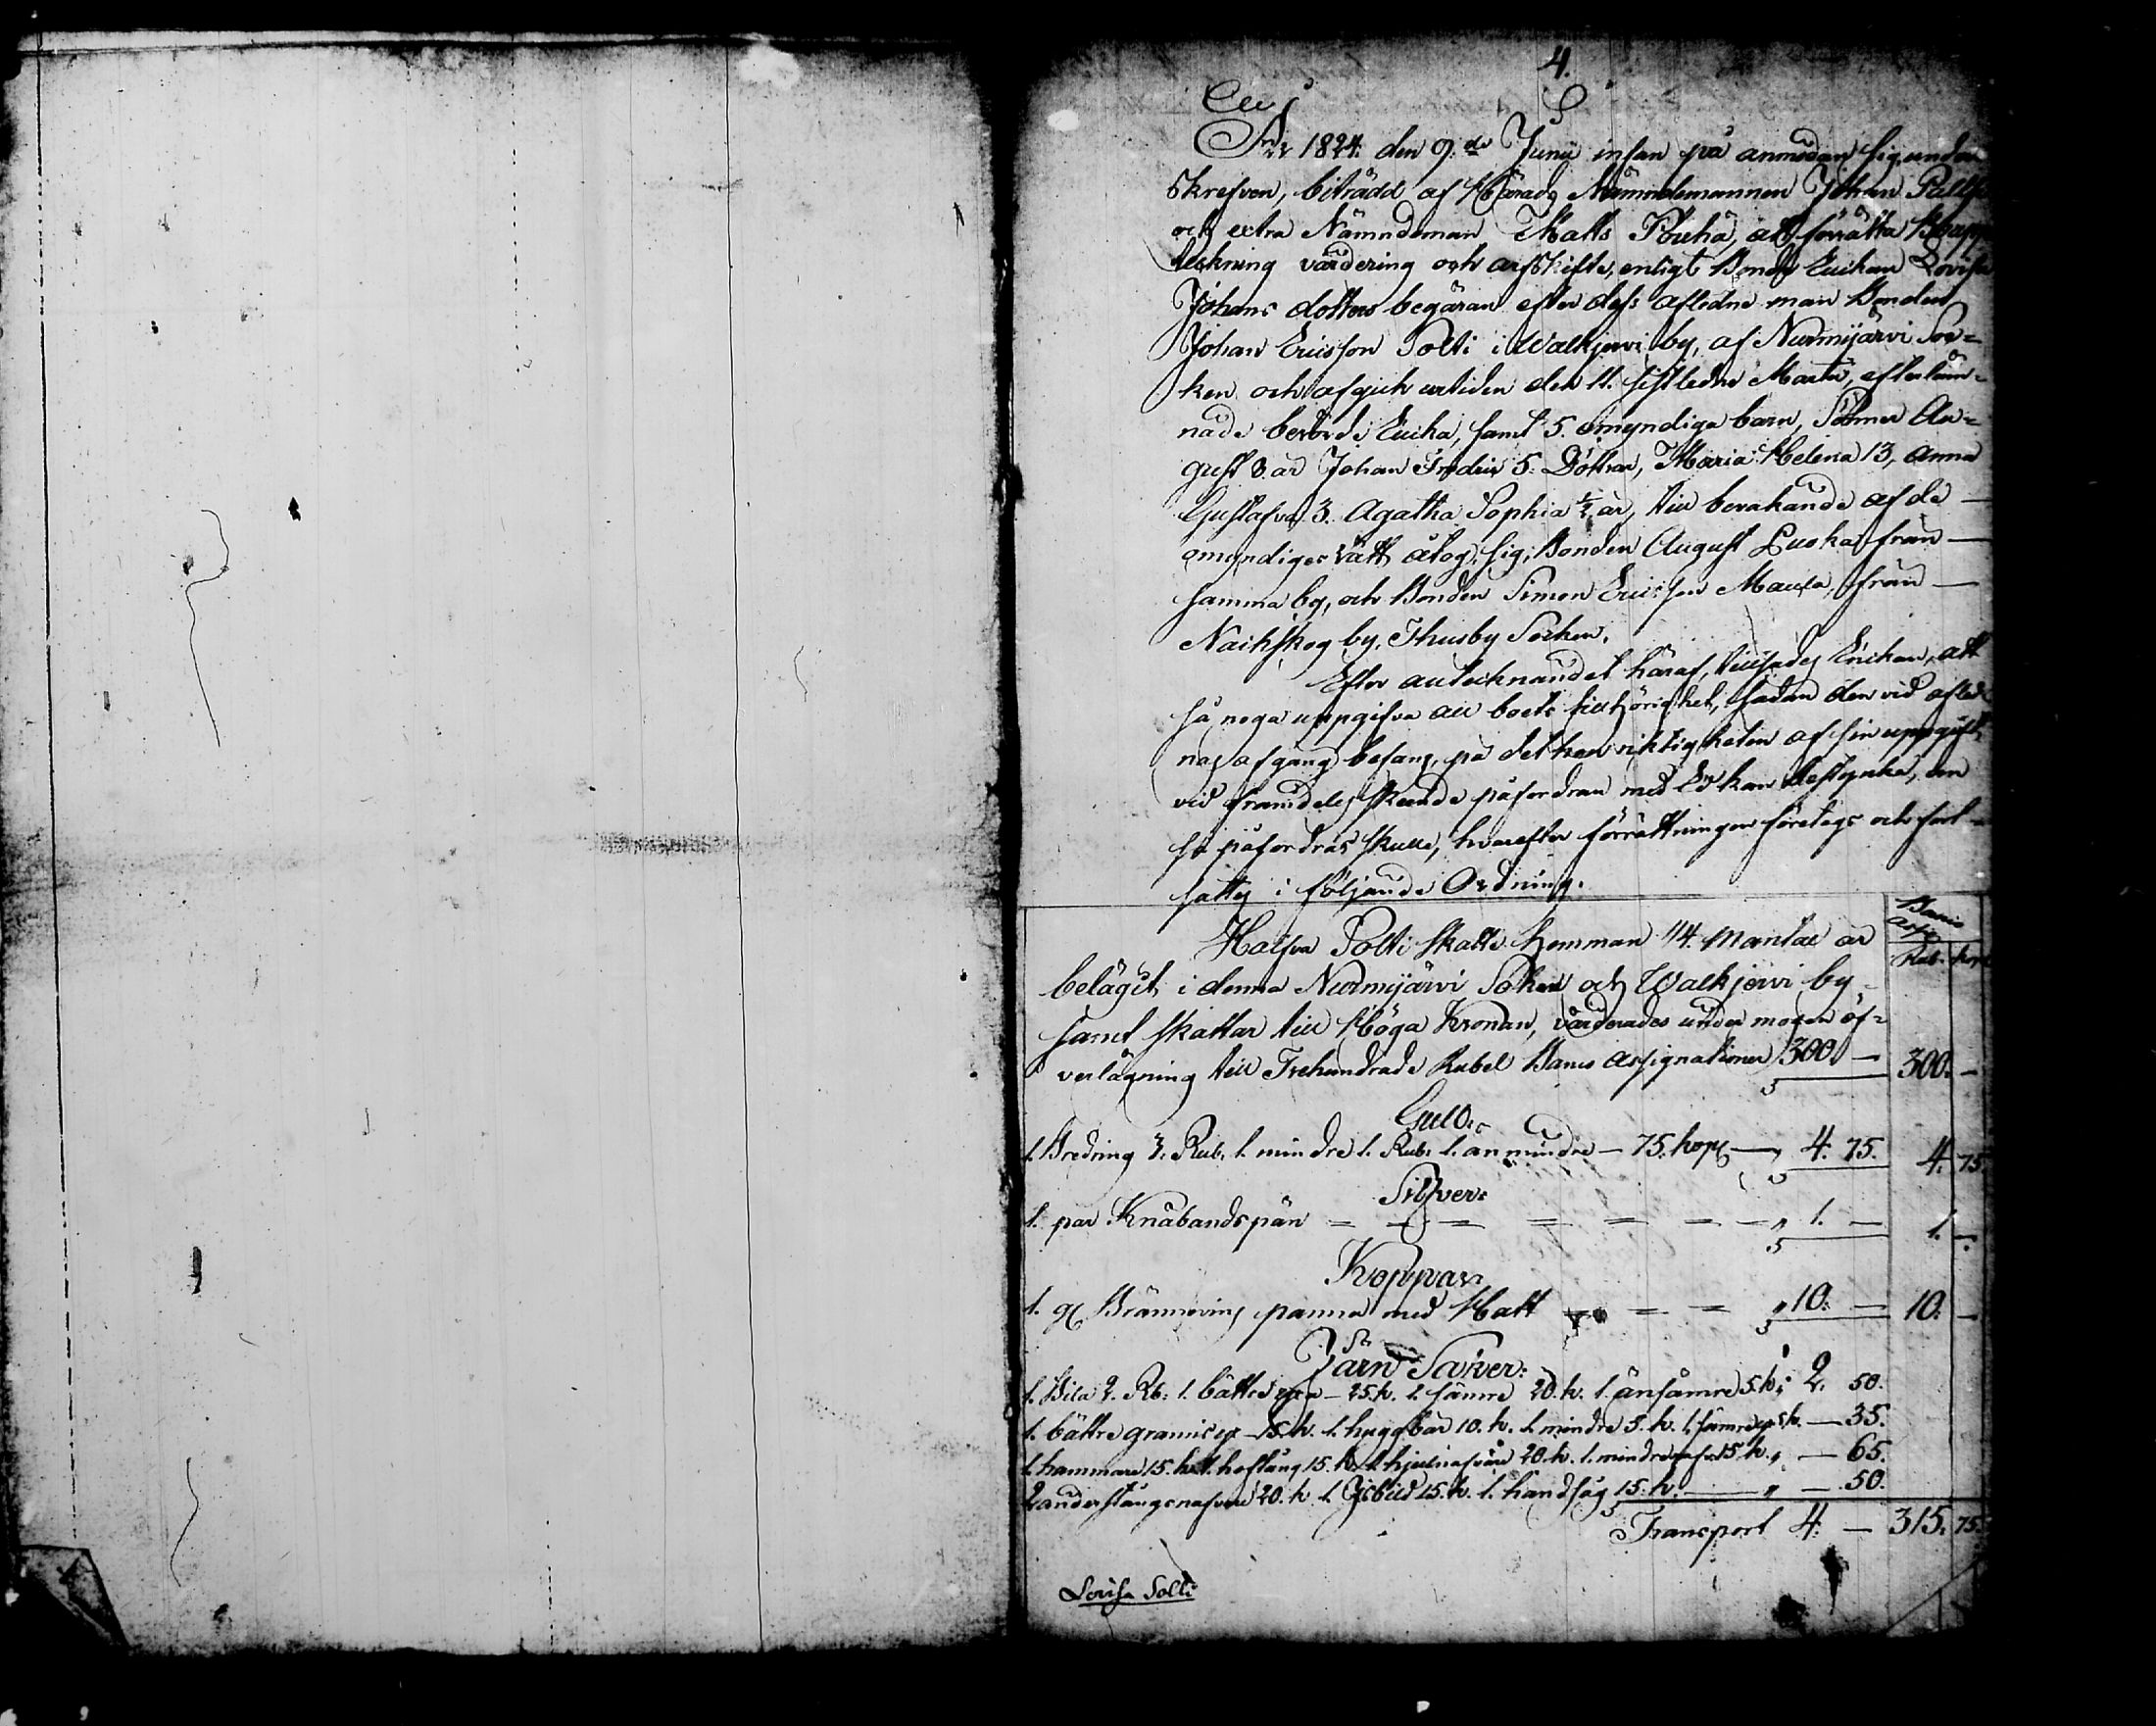 4.
År 1824. den 9:de Junii infan på anmodan sig under
skrefven, biträdd af Härads Nämndemannen Johan
och extra Nämndeman Matts Pouha, att förrätta Boupp
teckning värdering och arfskifte, enligt Bonde Enkan Lovisa
Johans dotters begäran efter dess aflidne man Bonden
Johan Ericsson Solti i Walkjervi by, af Nurmijärvi Soc=
ken och afgick urtiden den 11. sistledne Martii, efterläm=
nade berörde Encka, samt 5. omyndiga barn, Söner Au=
gust 8 år Johan Fredric 5. Döttrar, Maria Helena 13, Anna
Gustafva 3. Agatha Sophia ½ år, till bevakande af de —
omyndiges rätt åtog sig, Bonden August Luoka från —
samma by, och Bonden Simon Ericsson Maula, från —
Nackskog by. Thusby Socken.
Efter antecknandet häraf, tillsades Enckan, att
så noga uppgifva all boets tillhörighet, sådan den vid afled
nas afgång befans, på det hon riktigheten af sin uppgift,
vid framdeles skeende påfordran med Ed kan bestyrka, om
så påfordras skulle, hvarefter förrättningen företogs och fort=
sattes i följande Ordning.
Banco
Assig
Rub. kop
Halfva Solti Skatte hemman 1/4 Mantal är
beläget i denna Nurmijärvi Soken och Walkjervi by =
samt skattar till Höga Kronan, värderades under mogen öf=
verlägning till Trehundrade Rubel Banco Assignationer 300. — 300. —
Guld:
1. Bredring 3. Rub. 1. mindre 1. Rub. 1. än mindre — 75. kop — " 4. 75. 4. 75.
Silfver:
1. par Knäbandspän = = = = = — — " 1. — 1. —
Koppar:
1. gl Brännevins panna med Hatt = = " 10. — 10. —
Järn Saker:
1. Bila 2. Rb: 1. bättre yxa — 25. k. 1. sämre 20. k. 1. än sämre 5. k. " 2. 50.
1. bättre gransisyx — 15. k. 1. huggbår 10. k. 1. mindre 5. k. 1. sämre yx 5 k. — 35.
1. hammare 15. k. 1. hoftång 15. k. 1. hjulnafvare 20. k. 1. mindre nafv. 15 k. " — 65.
2 anderstångsnafvare 20. k 1. Isbill 15. k. 1. handsåg 15. k. " — 50.
Transport 4. — 315. 75.
Lovisa Solti